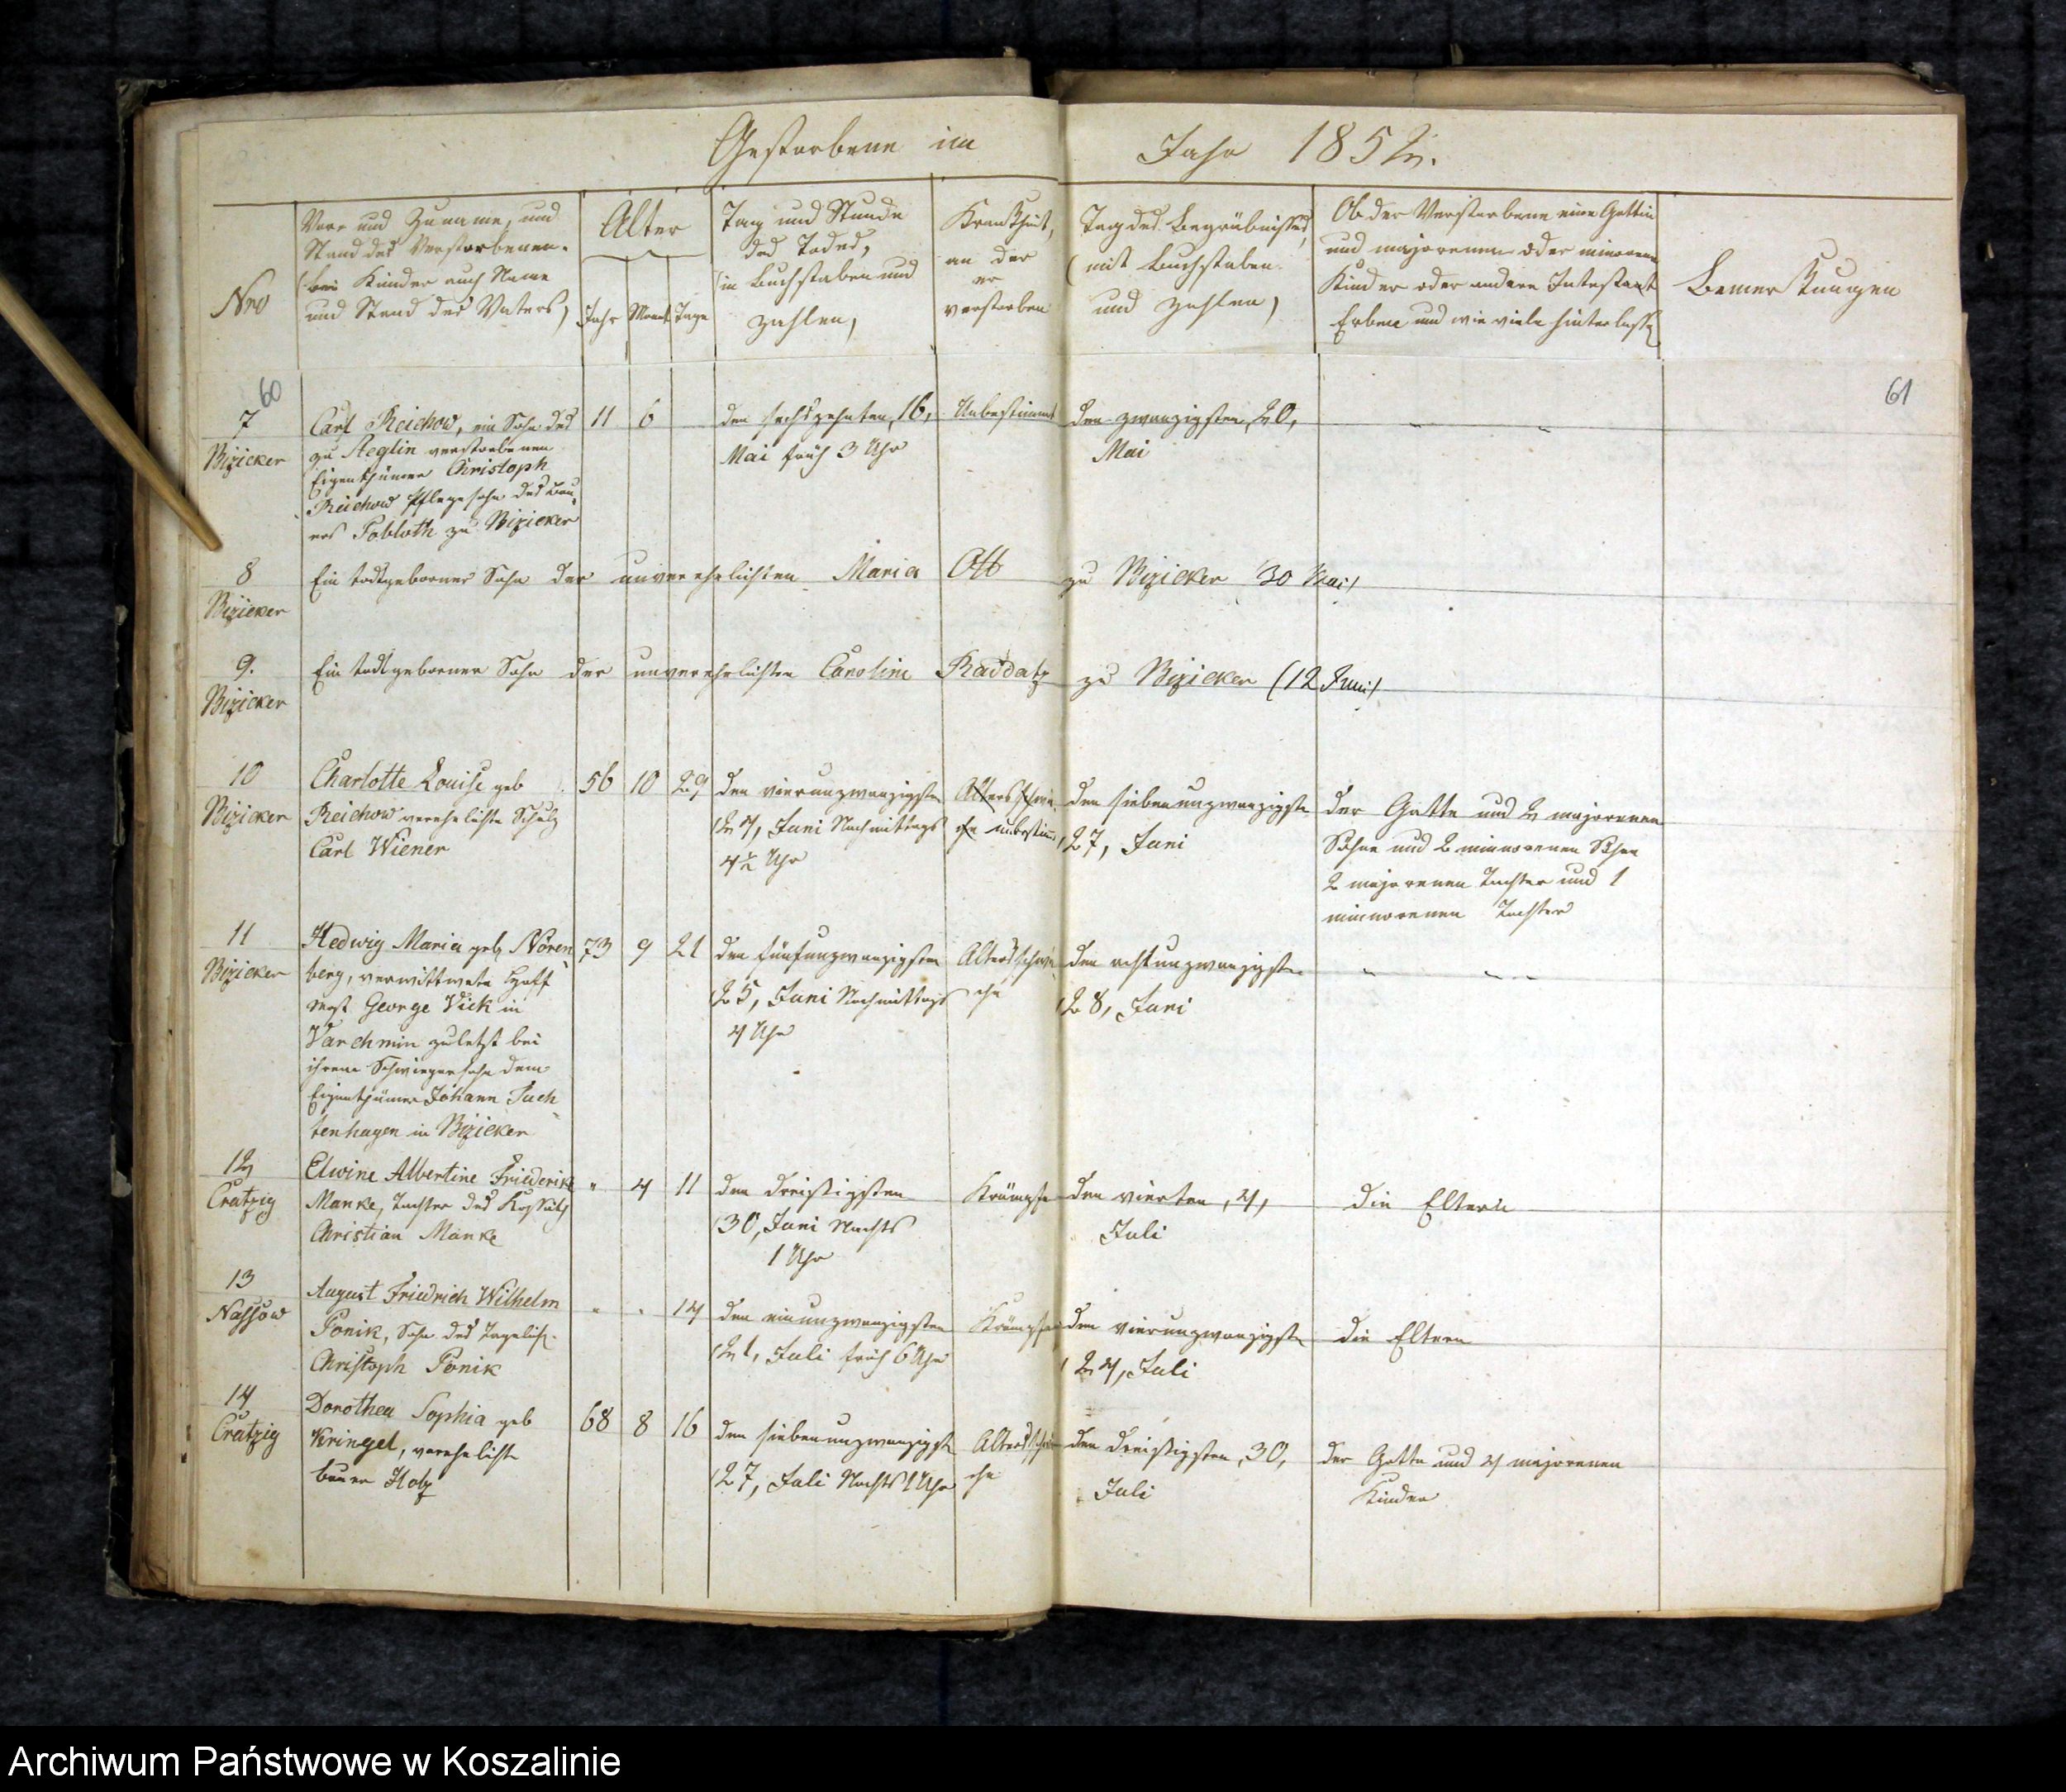 Gestorbene im Jahr 1852.
Nro
Vor- und Zuname, und
Stand des Verstorbenen.
(bei Kinder auch Name
und Stand des Vaters)
Alter
Jahr Monat Tage
Tag und Stunde
des Todes,
(in Buchstaben und
Zahlen)
Krankheit,
an der
er
verstorben
Tag des Begräbnisses,
(mit Buchstaben
und Zahlen)
Ob der Verstorbene eine Gattin
und majorenne oder minorenne
Kinder oder andere Intestat
Erben und wie viele hinterlassen
Bemerkungen
60
61
7
Bizicker
Carl Reichow, ein Sohn des
zu Steglin verstorbenen
Eigenthümer Christoph
Reichow Pflegesohn des Bau-
ers Pobloth zu Bizicker
11 6
den sechszehnten, 16,
Mai früh 3 Uhr
Unbestimmt
den zwanzigsten, 20,
Mai
" "
8
Bizicker
Ein todtgeborner Sohn der unverehelichten Maria Ott zu Bizicker (30 Mai)
9.
Bizicker
Ein todtgeborner Sohn der unverehelichten Caroline Raddatz zu Bizicker (12 Juni)
10
Bizicker
Charlotte Louise geb
Reichow verehelichte Schulz
Carl Wiener
56 10 29
den vierunzwanzigsten
(24, Juni Nachmittags
4½ Uhr
Altersschwä-
che unbestim
den siebenunzwanzigste
(27, Juni
der Gatte und 2 majorenne
Söhne und 2 minnorenen Söhne
2 majorenen Tochter und 1
minnorenen Tochter
11
Bizicker
Hedwig Maria geb Nören-
berg, verwittwete
George Vick in
Varchmin zuletzt bei
ihrem Schwiegersohn dem
Eigenthümer Johann Tuch-
tenhagen in Bizicker
73 9 21
den fünfunzwanzigsten
(25, Juni Nachmittags
4 Uhr
Altersschwä-
che
den achtunzwanzigsten
(28, Juni
" " "
12
Cratzig
Elwine Albertine Friederike
Manke, Tochter des Kossäth
Christian Manke
" 4 11
den dreisigsten
(30, Juni Nachts
1 Uhr
Krämpfe
den vierten, 4,
Juli
die Eltern
13
Nassow
August Friedrich Wilhelm
Ponik, Sohn des Tagelöh.
Christoph Ponik
" " 14
den einunzwanzigsten
(21, Juli früh 6 Uhr
Krämpfen
den vierunzwanzigste
(24, Juli
die Eltern
14
Cratzig
Dorothea Sophia geb
Kringel, verehelichte
Bauer Holz
68 8 16
den siebenunzwanzigst
(27, Juli Nachts 1 Uhr
Altersschwä
che
den dreisigsten, 30,
Juli
der Gatte und 4 majorenen
Kinder
Archiwum Państwowe w Koszalinie